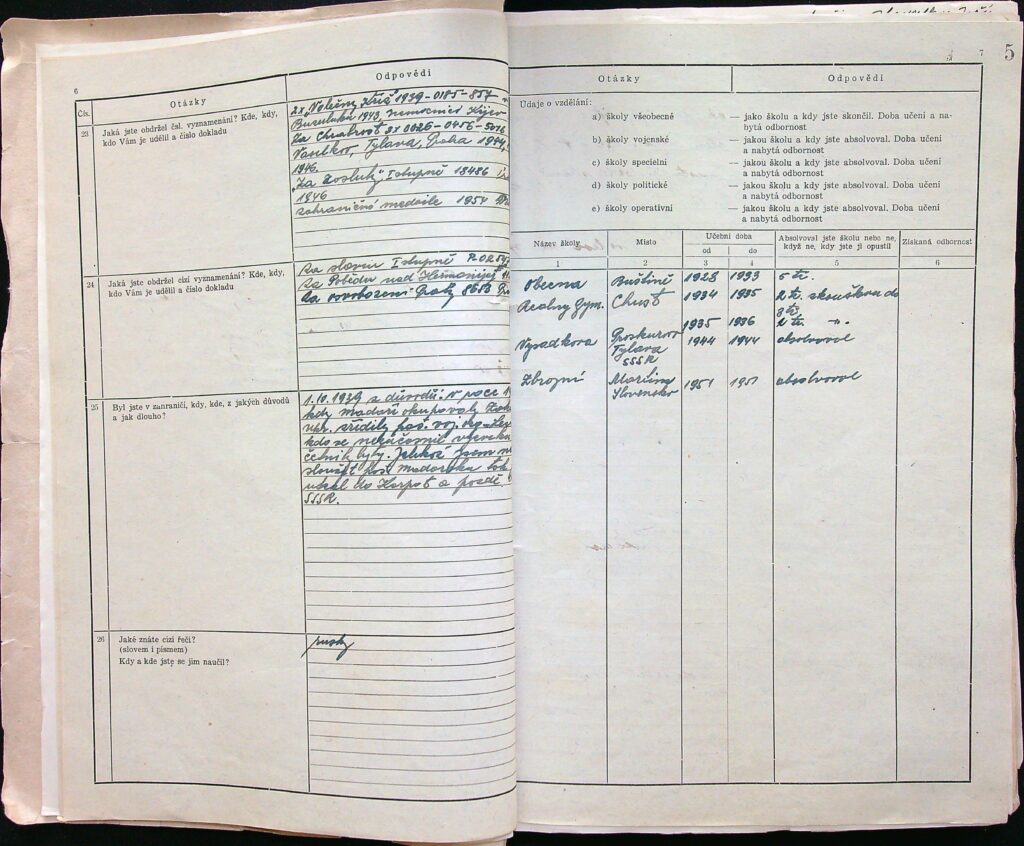 6
Čís.
Otázky
Odpovědi
23
Jaká jste obdržel čsl. vyznamenání? Kde, kdy,
kdo Vám je udělil a číslo dokladu
2x „Válečný Kříž" 1939-0185-854
Buzuluku 1943, nemocnici Kyjev
Za Chrabrost 3x 0026-0456-5016
Vasilkov, Tylava, Praha 1944,
1946.
„Za zásluhy" I stupně 18486
1946
zahraniční medaile 1954
24
Jaká jste obdržel cizí vyznamenání? Kde, kdy,
kdo Vám je udělil a číslo dokladu
Za slavu I stupně
Za Pobědu nad Heřmanijej
Za osvobození Prahy 8613
25
Byl jste v zahraničí, kdy, kde, z jakých důvodů
a jak dlouho?
1.10.1939 z důvodů: v roce
kdy maďaři okupovaly
zřídily
kdo se nezúčasnil
četník byty. Jelikož jsem
sloužit pod maďarsku
utekl do Karpat a pozdě
SSSR.
26
Jaké znáte cizí řeči?
(slovem i písmem)
Kdy a kde jste se jim naučil?
rusky
7
5
Otázky
Odpovědi
Údaje o vzdělání:
a) školy všeobecné
— jako školu a kdy jste skončil. Doba učení a na-
bytá odbornost
b) školy vojenské
— jakou školu a kdy jste absolvoval. Doba učení
a nabytá odbornost
c) školy specielní
— jakou školu a kdy jste absolvoval. Doba učení
a nabytá odbornost
d) školy politické
— jakou školu a kdy jste absolvoval. Doba učení
a nabytá odbornost
e) školy operativní
— jakou školu a kdy jste absolvoval. Doba učení
a nabytá odbornost
Název školy
Místo
Učební doba
od
do
Absolvoval jste školu nebo ne,
když ne, kdy jste ji opustil
Získaná odbornost
1 2 3 4 5 6
Obecna Buštině 1928 1933 5 tř.
Realny Gym. Chust 1934 1935 2 tř. skouškou do
3 tř.
1935 1936 2 tř. "
Vysadkova Proskurov 1944 1944 absolvoval
Tylava
SSSR
Zbrojní Martin 1951 1951 absolvoval
Slovensko